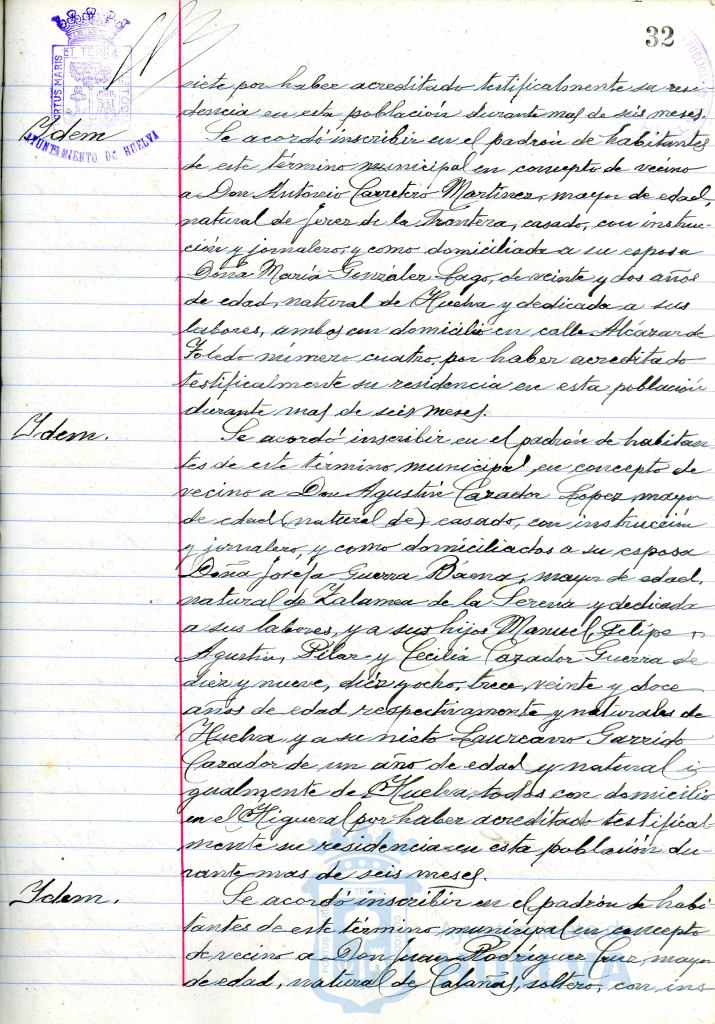 32
PORTUS MARIS
ET TERRÆ
AYUNTAMIENTO DE HUELVA
siete por haber acreditado testificalmente su resi-
dencia en esta población durante mas de seis meses.
Idem
Se acordó inscribir en el padrón de habitantes
de este término municipal en concepto de vecino
a Don Antonio Carretero Martinez, mayor de edad,
natural de Jerez de la Frontera, casado, con instruc-
ción y jornalero, y como domiciliada a su esposa
Doña María González Lago, de veinte y dos años
de edad, natural de Huelva y dedicada a sus
labores, ambos con domicilio en calle Alcázar de
Toledo número cuatro, por haber acreditado
testificalmente su residencia en esta población
durante mas de seis meses.
Idem.
Se acordó inscribir en el padrón de habitan-
tes de este término municipal, en concepto de
vecino a Don Agustín Cazador Lopez, mayor
de edad (natural de) casado, con instrucción
y jornalero, y como domiciliados a su esposa
Doña Joséfa Guerra Báena, mayor de edad,
natural de Zalamea de la Serena y dedicada
a sus labores, y a sus hijos Manuel, Felipe,
Agustin, Pilar y Cecilia Cazador Guerra de
diez y nueve, diéz y ocho, trece, veinte y doce
años de edad respectivamente y naturales de
Huelva y a su nieto Laureano Garrido
Cazador de un año de edad y natural i-
gualmente de Huelva, todos con domicilio
en el Higueral por haber acreditado testifical-
mente su residencia en esta población du-
rante mas de seis meses.
Idem.
Se acordó inscribir en el padrón de habi-
tantes de este término municipal en concepto
de vecino a Don Juan Rodríguez Cruz, mayor
de edad, natural de Calañas, soltero, con ins-